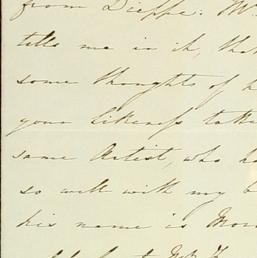 from Dieppe: M
tells me in it, tha
some thoughts of h
your likeness take
same Artist, who ha
so well with my b
his name is Mon